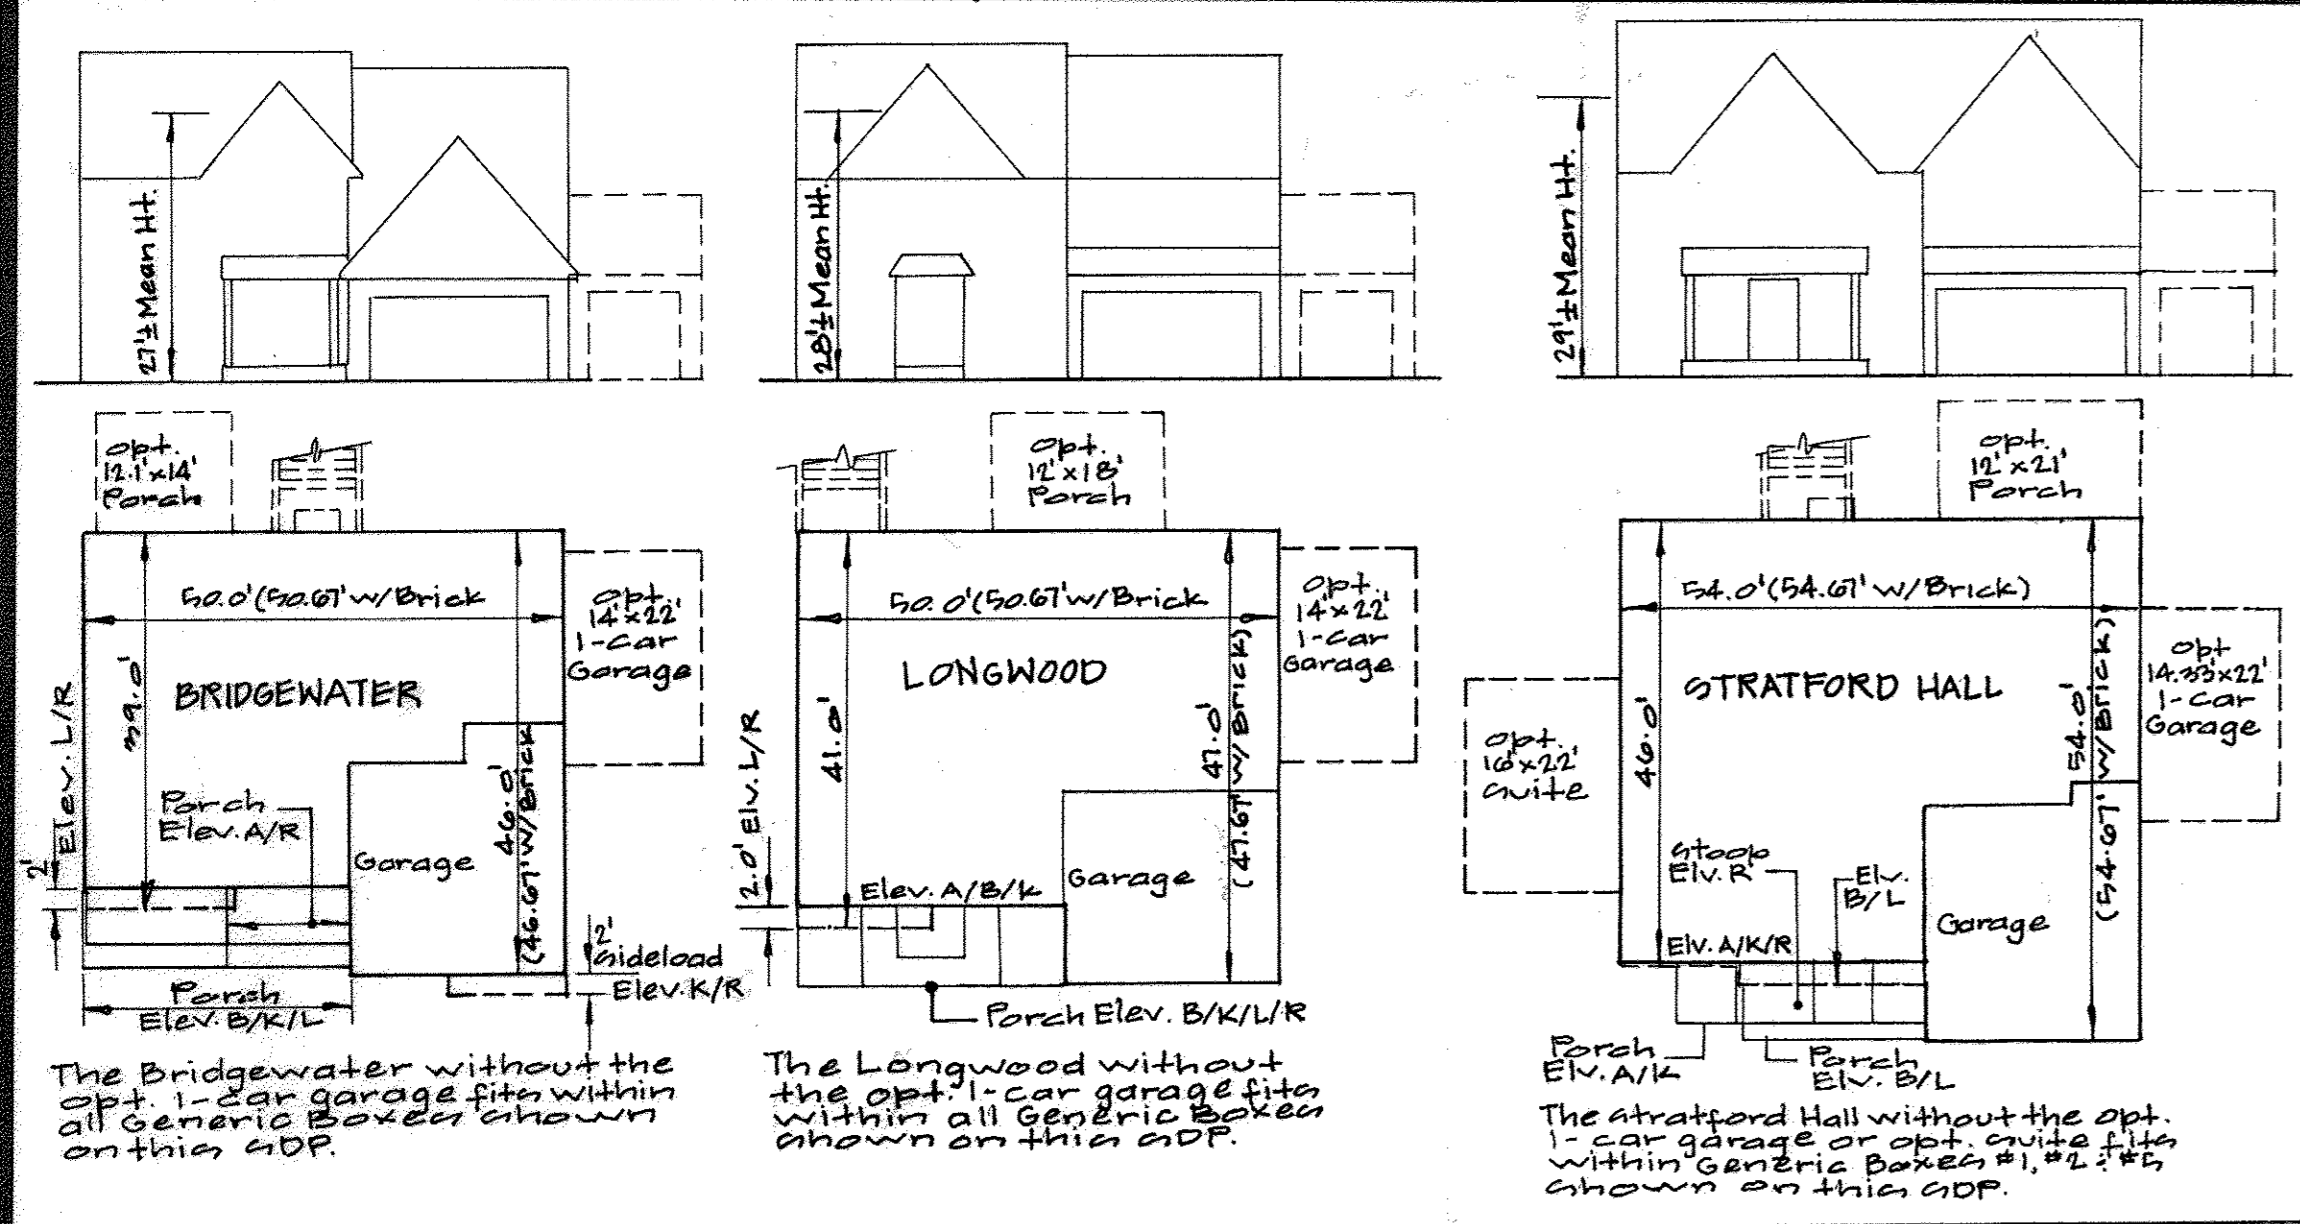 27'± Mean Ht.
28'± Mean Ht.
29'± Mean Ht.
opt.
12.1'x14'
Porch
50.0'(50.67' w/Brick
39.0'
BRIDGEWATER
opt.
14'x22'
1-car
Garage
2' Elev. L/R
Porch
Elev. A/R
Garage
46.0'
(46.67' W/Brick
2'
Sideload
Elev. K/R
Porch
Elev. B/K/L
The Bridgewater without the
opt. 1-car garage fits within
all Generic Boxes shown
on this SDP.
Opt.
12'x18'
Porch
50.0'(50.67' w/Brick
LONGWOOD
opt.
14'x22'
1-car
Garage
41.0'
47.0'
(47.67' W/Brick)
2.0' Elv. L/R
Elev. A/B/K
Garage
Porch Elev. B/K/L/R
The Longwood without
the opt. 1-car garage fits
within all Generic Boxes
shown on this SDP.
opt.
12'x21'
Porch
54.0'(54.67' w/Brick)
STRATFORD HALL
opt
14.33'x22'
1-car
Garage
opt.
16'x22'
Suite
46.0'
54.0'
(54.67' W/Brick)
Stoop
Elv. R
Elv.
B/L
Elv. A/K/R
Garage
Porch
Elv. A/K
Porch
Elv. B/L
The Stratford Hall without the opt.
1-car garage or opt. suite fits
within Generic Boxes #1, #2 & #5
shown on this SDP.